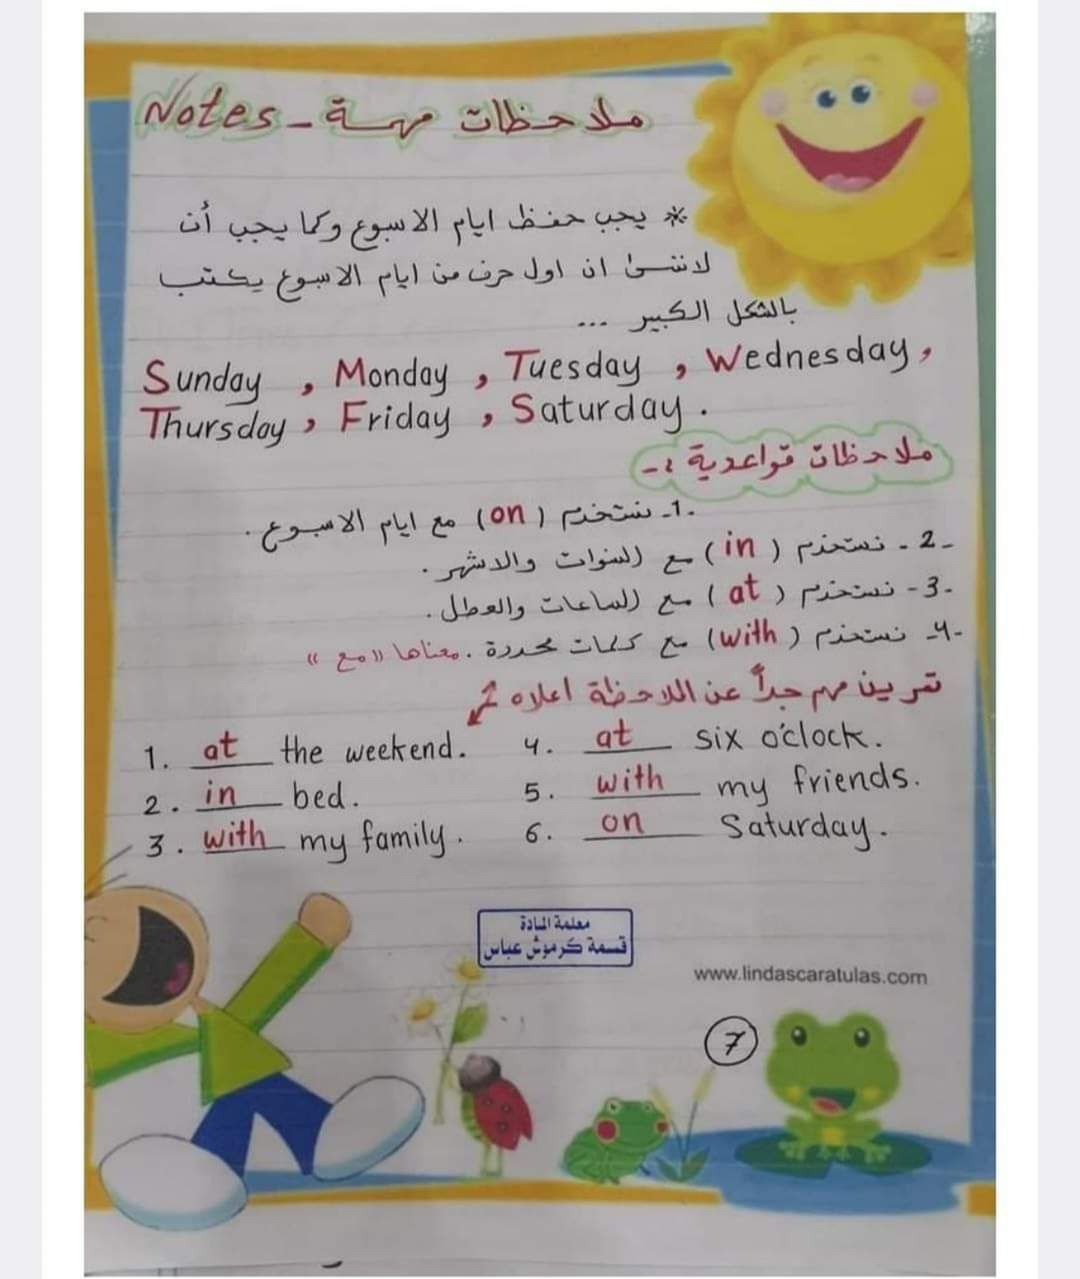 Notes - ملاحظات مهمة
* يجب حفظ ايام الاسبوع وكما يجب أن
لاننسى ان اول حرف من ايام الاسبوع يكتب
بالشكل الكبير ...
Sunday , Monday , Tuesday , Wednesday ,
Thursday , Friday , Saturday .
ملاحظات قواعدية :-
1- نستخدم (on) مع ايام الاسبوع .
2- نستخدم (in) مع السنوات والاشهر .
3- نستخدم (at) مع الساعات والعطل .
4- نستخدم (with) مع كلمات محددة . معناها "مع"
تمرين مهم جداً عن الملاحظة اعلاه
1. at the weekend. 4. at six o'clock.
2. in bed. 5. with my friends.
3. with my family. 6. on Saturday.
معلمة المادة
قسمة كرموش عباس
www.lindascaratulas.com
7